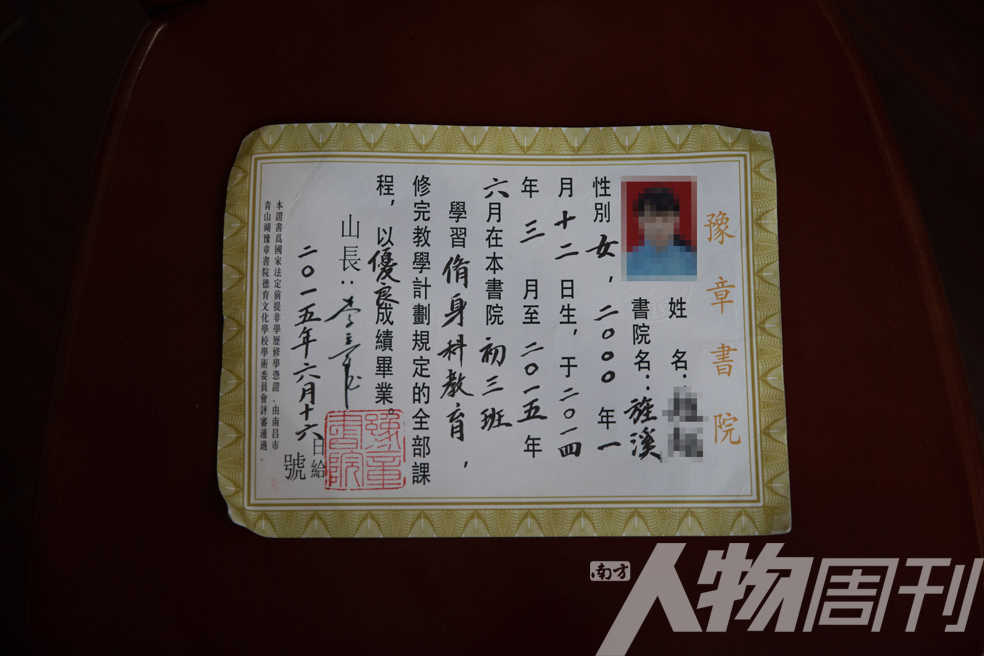 豫章書院
姓名：
書院名：旌溪
性別女，二〇〇〇年一
月十二日生，于二〇一四
年三月至二〇一五年
六月在本書院初三班
學習脩身科教育，
修完教學計劃規定的全部課
程，以優良成績畢業。
山長：
豫章書院
二〇一五年六月十六日給
號
本證書爲國家法定前提非學歷修學憑證，由南昌市
青山湖豫章書院德育文化學校學術委員會評審通過。
南方人物周刊